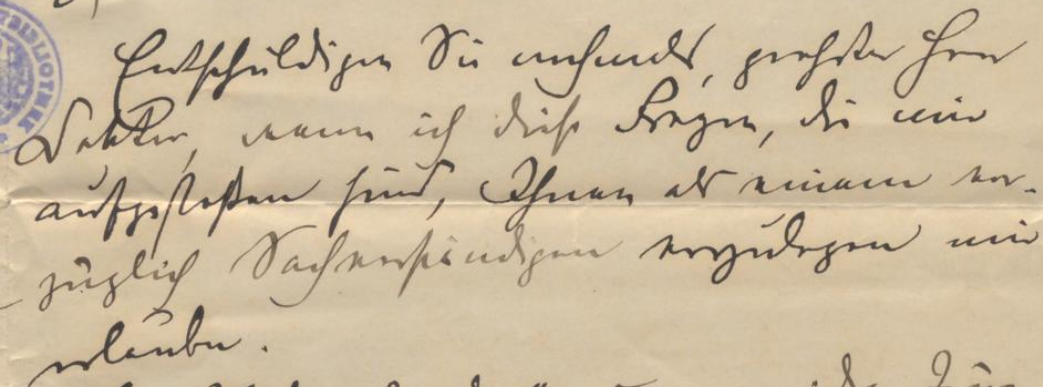 BIBLIOTHEK
Entschuldigen Sie nochmals, geehrter Herr
Doktor, wenn ich diese Fragen, die mir
aufgestoßen sind, Ihnen als einem vor-
züglich Sachverständigen vorzulegen mir
erlaube.